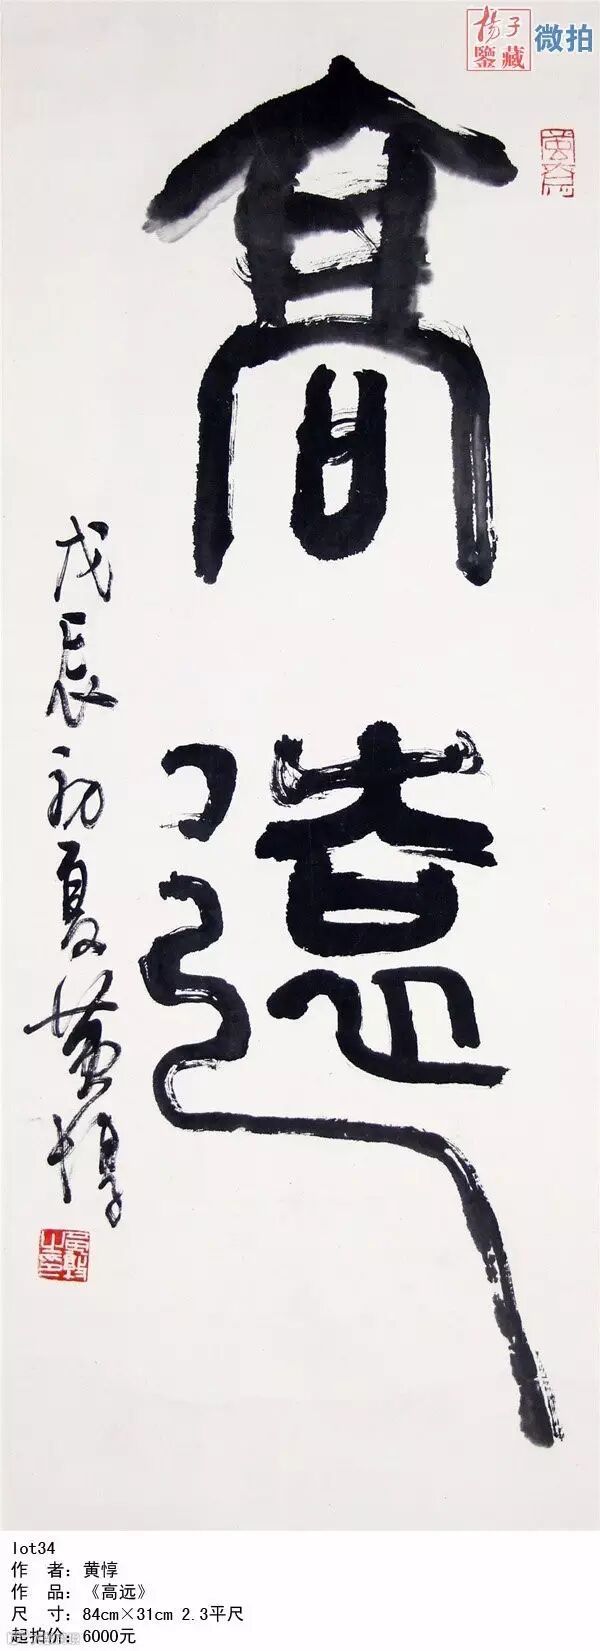 揚子
鑒藏
微拍
高遠
戊辰初夏黄惇
lot34
作　者：黄惇
作　品：《高远》
尺　寸：84cm×31cm 2.3平尺
起拍价：6000元